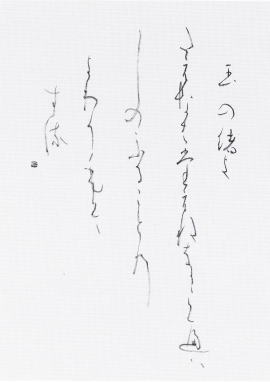 玉の緒よ
たえなはたえねなからへは
しのふることの
よわりもそする